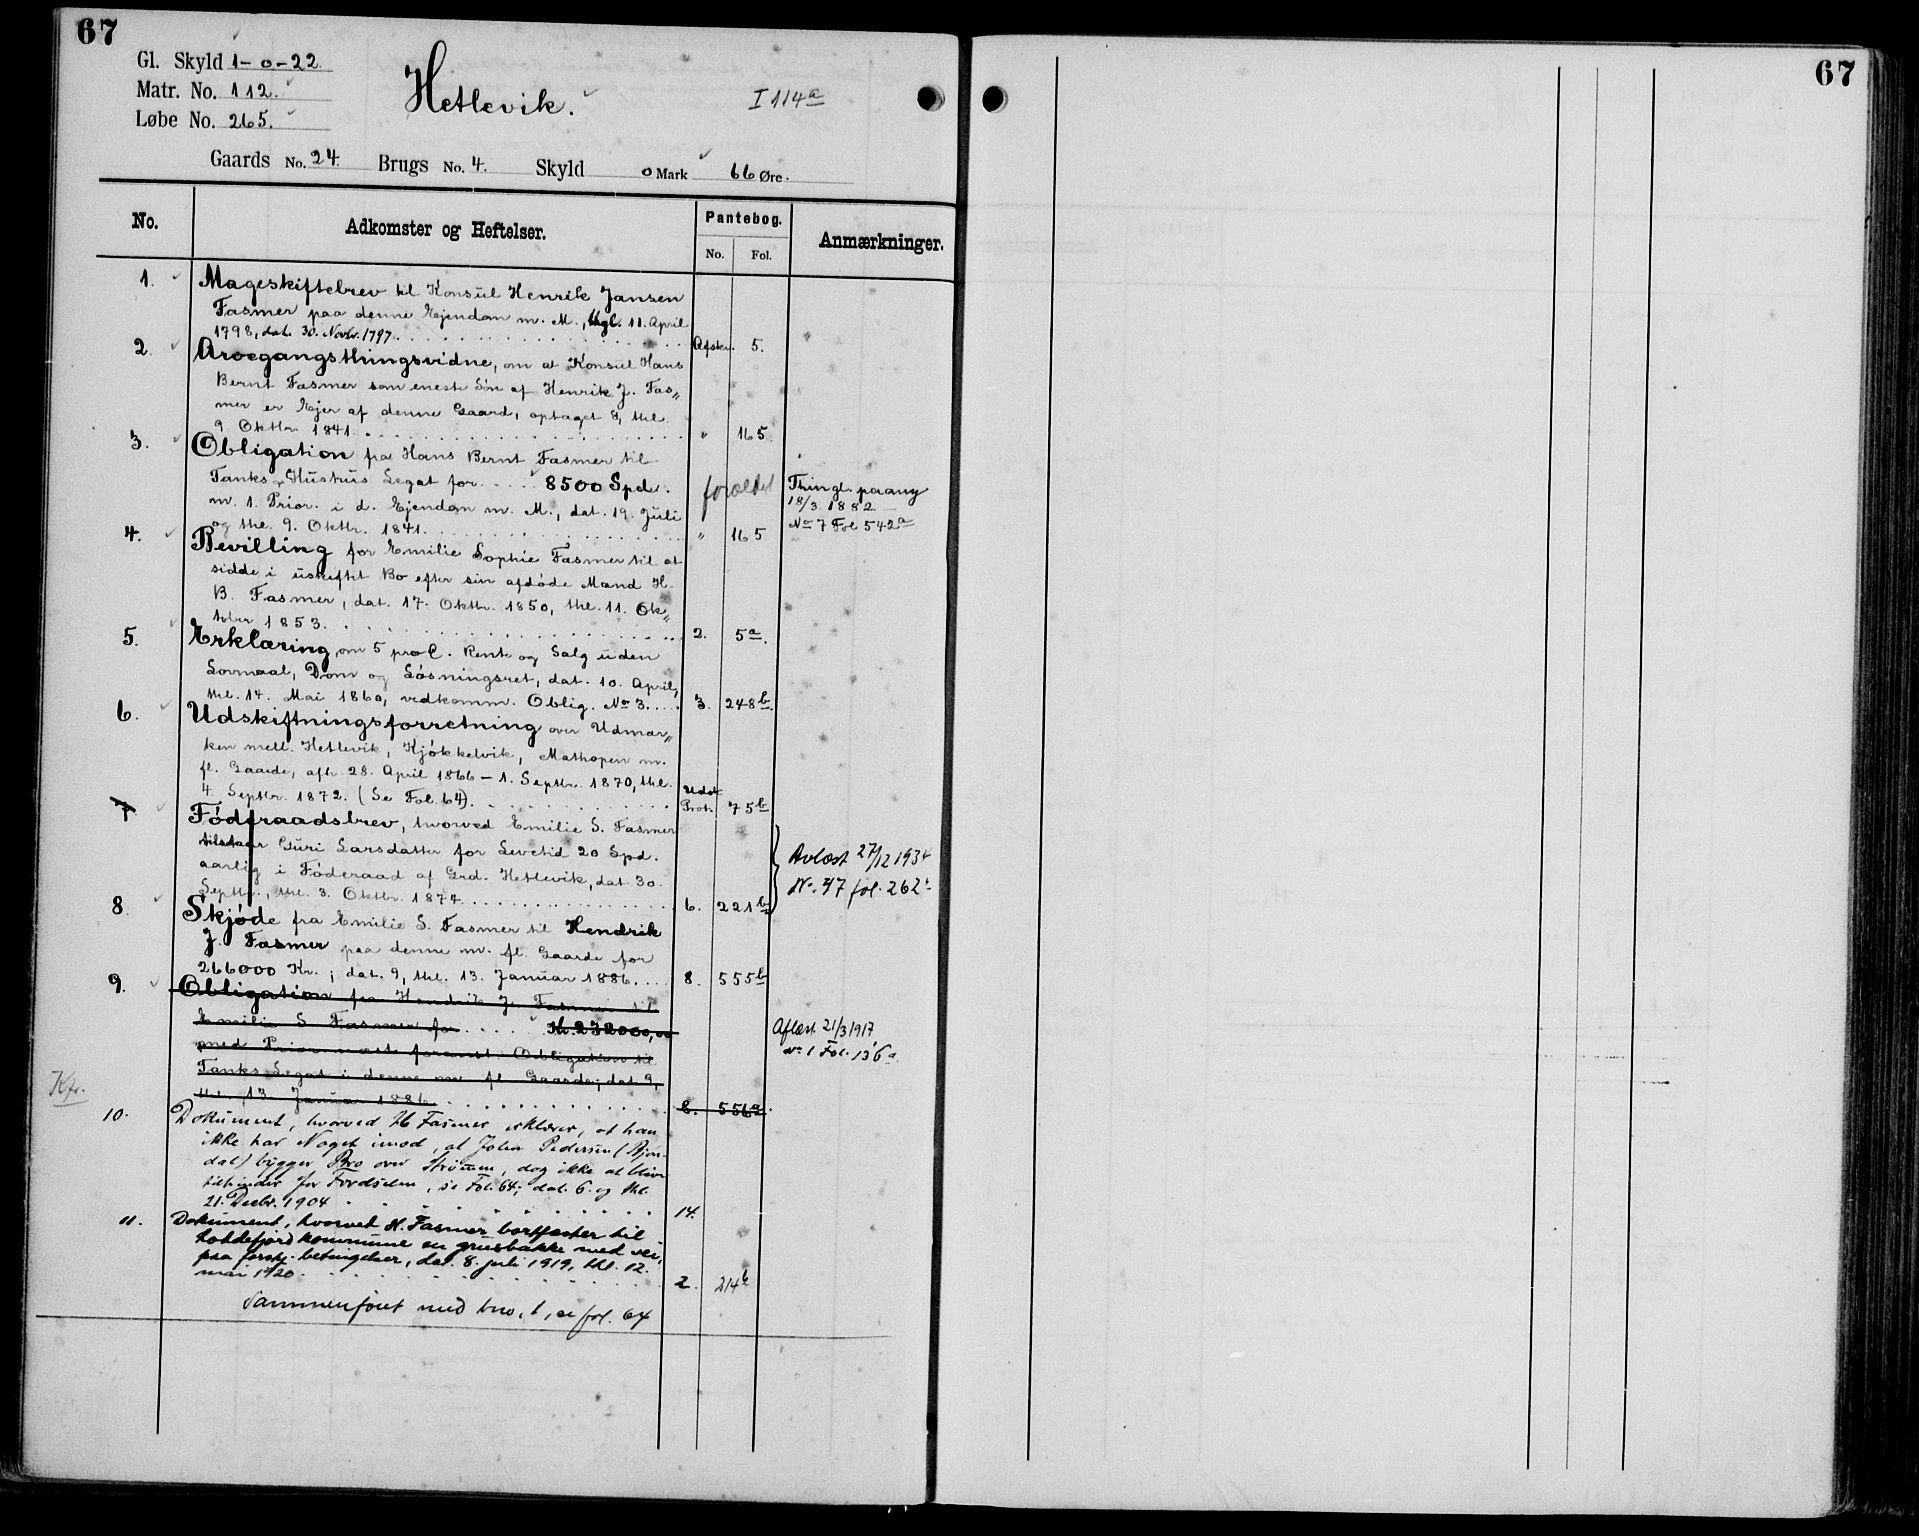 67
Gl. Skyld 1-0-22.
Matr. No. 112.
Løbe No. 265.
Hetlevik.
I 114a
Gaards No. 24. Brugs No. 4. Skyld 0 Mark 66 Øre.
No.
Adkomster og Heftelser.
Pantebog.
No. Fol.
Anmærkninger.
1. Mageskiftebrev til Konsul Henrik Jansen
Fasmer paa denne Ejendom m. M., thgl. 11. April
1798, dat. 30. Novbr. 1797. Afskr. 5.
2. Arvegangsthingsvidne, om at Konsul Hans
Bernt Fasmer som eneste Søn af Henrik J. Fas„
mer er Ejer af denne Gaard, optaget 8, thl.
9. Oktbr. 1841. " 165.
3. Obligation fra Hans Bernt Fasmer til
Tanks & Hustrus Legat for 8500 Spd.
m. 1. Prior. i d. Ejendom m. M., dat. 19. Juli
og thl. 9. Oktbr. 1841. " 165
forældet
Thingl. paany
18/3 1882
No 7 Fol 542a
4. Bevilling for Emilie Sophie Fasmer til at
sidde i uskiftet Bo efter sin afdøde Mand H.
B. Fasmer, dat. 17. Oktbr. 1850, thl. 11. Ok„
tober 1853. 2. 5a.
5. Erklæring om 5 proC. Rente og Salg uden
Lovmaal, Dom og Løsningsret, dat. 10. April,
thl. 14. Mai 1860, vedkomm. Oblig. No 3. 3. 248b.
6. Udskiftningsforretning over Udmar„
ken mell. Hetlevik, Kjøkkelvik, Mathopen m.
fl. Gaarde, afh. 28. April 1866 – 1. Septbr. 1870, thl.
4. Septbr. 1872. (Se Fol. 64). Udsk. Prot. 75b
7 Føderaadsbrev, hvorved Emilie S. Fasmer
tilstaar Guri Larsdatter for Levetid 20 Spd.
aarlig i Føderaad af Grd. Hetlevik, dat. 30.
Septbr., thl. 3. Oktbr. 1874. 6. 221b
Avlæst 27/12 1934
No. 47 fol. 262
8. Skjøde fra Emilie S. Fasmer til Hendrik
J. Fasmer paa denne m. fl. Gaarde for
266000 Kr.; dat. 9, thl. 13. Januar 1886. 8. 555b
9. Obligation fra Hendrik J. Fasmer til
Emilie S Fasmer for Kr. 232000,00
med Prior. næst foranst. Obligation til
Tanks Legat i denne m. fl. Gaarde; dat 9,
thl. 13. Januar 1886. 8. 556a.
Aflæst 21/3 1917,
No 1 Fol. 136a.
Kfr.
10. Dokument, hvorved H Fasmer erklærer, at han
ikke har Noget imod, at John Pedersen (Bjørn-
dal) bygger Bro over Strømmen, dog ikke at blive
tilhinder for Færdselen, se Fol. 64; dat. 6. og thl.
21. Decbr. 1904 14.
11. Dokument, hvorved H. Fasmer bortfæster til
Laksevåg kommune en grusbakke med vei,
paa forskj. betingelser, dat. 8. juli 1919, thl. 12.
mai 1920. 2. 214b
Sammenføiet med bno. 1, se fol. 64
67